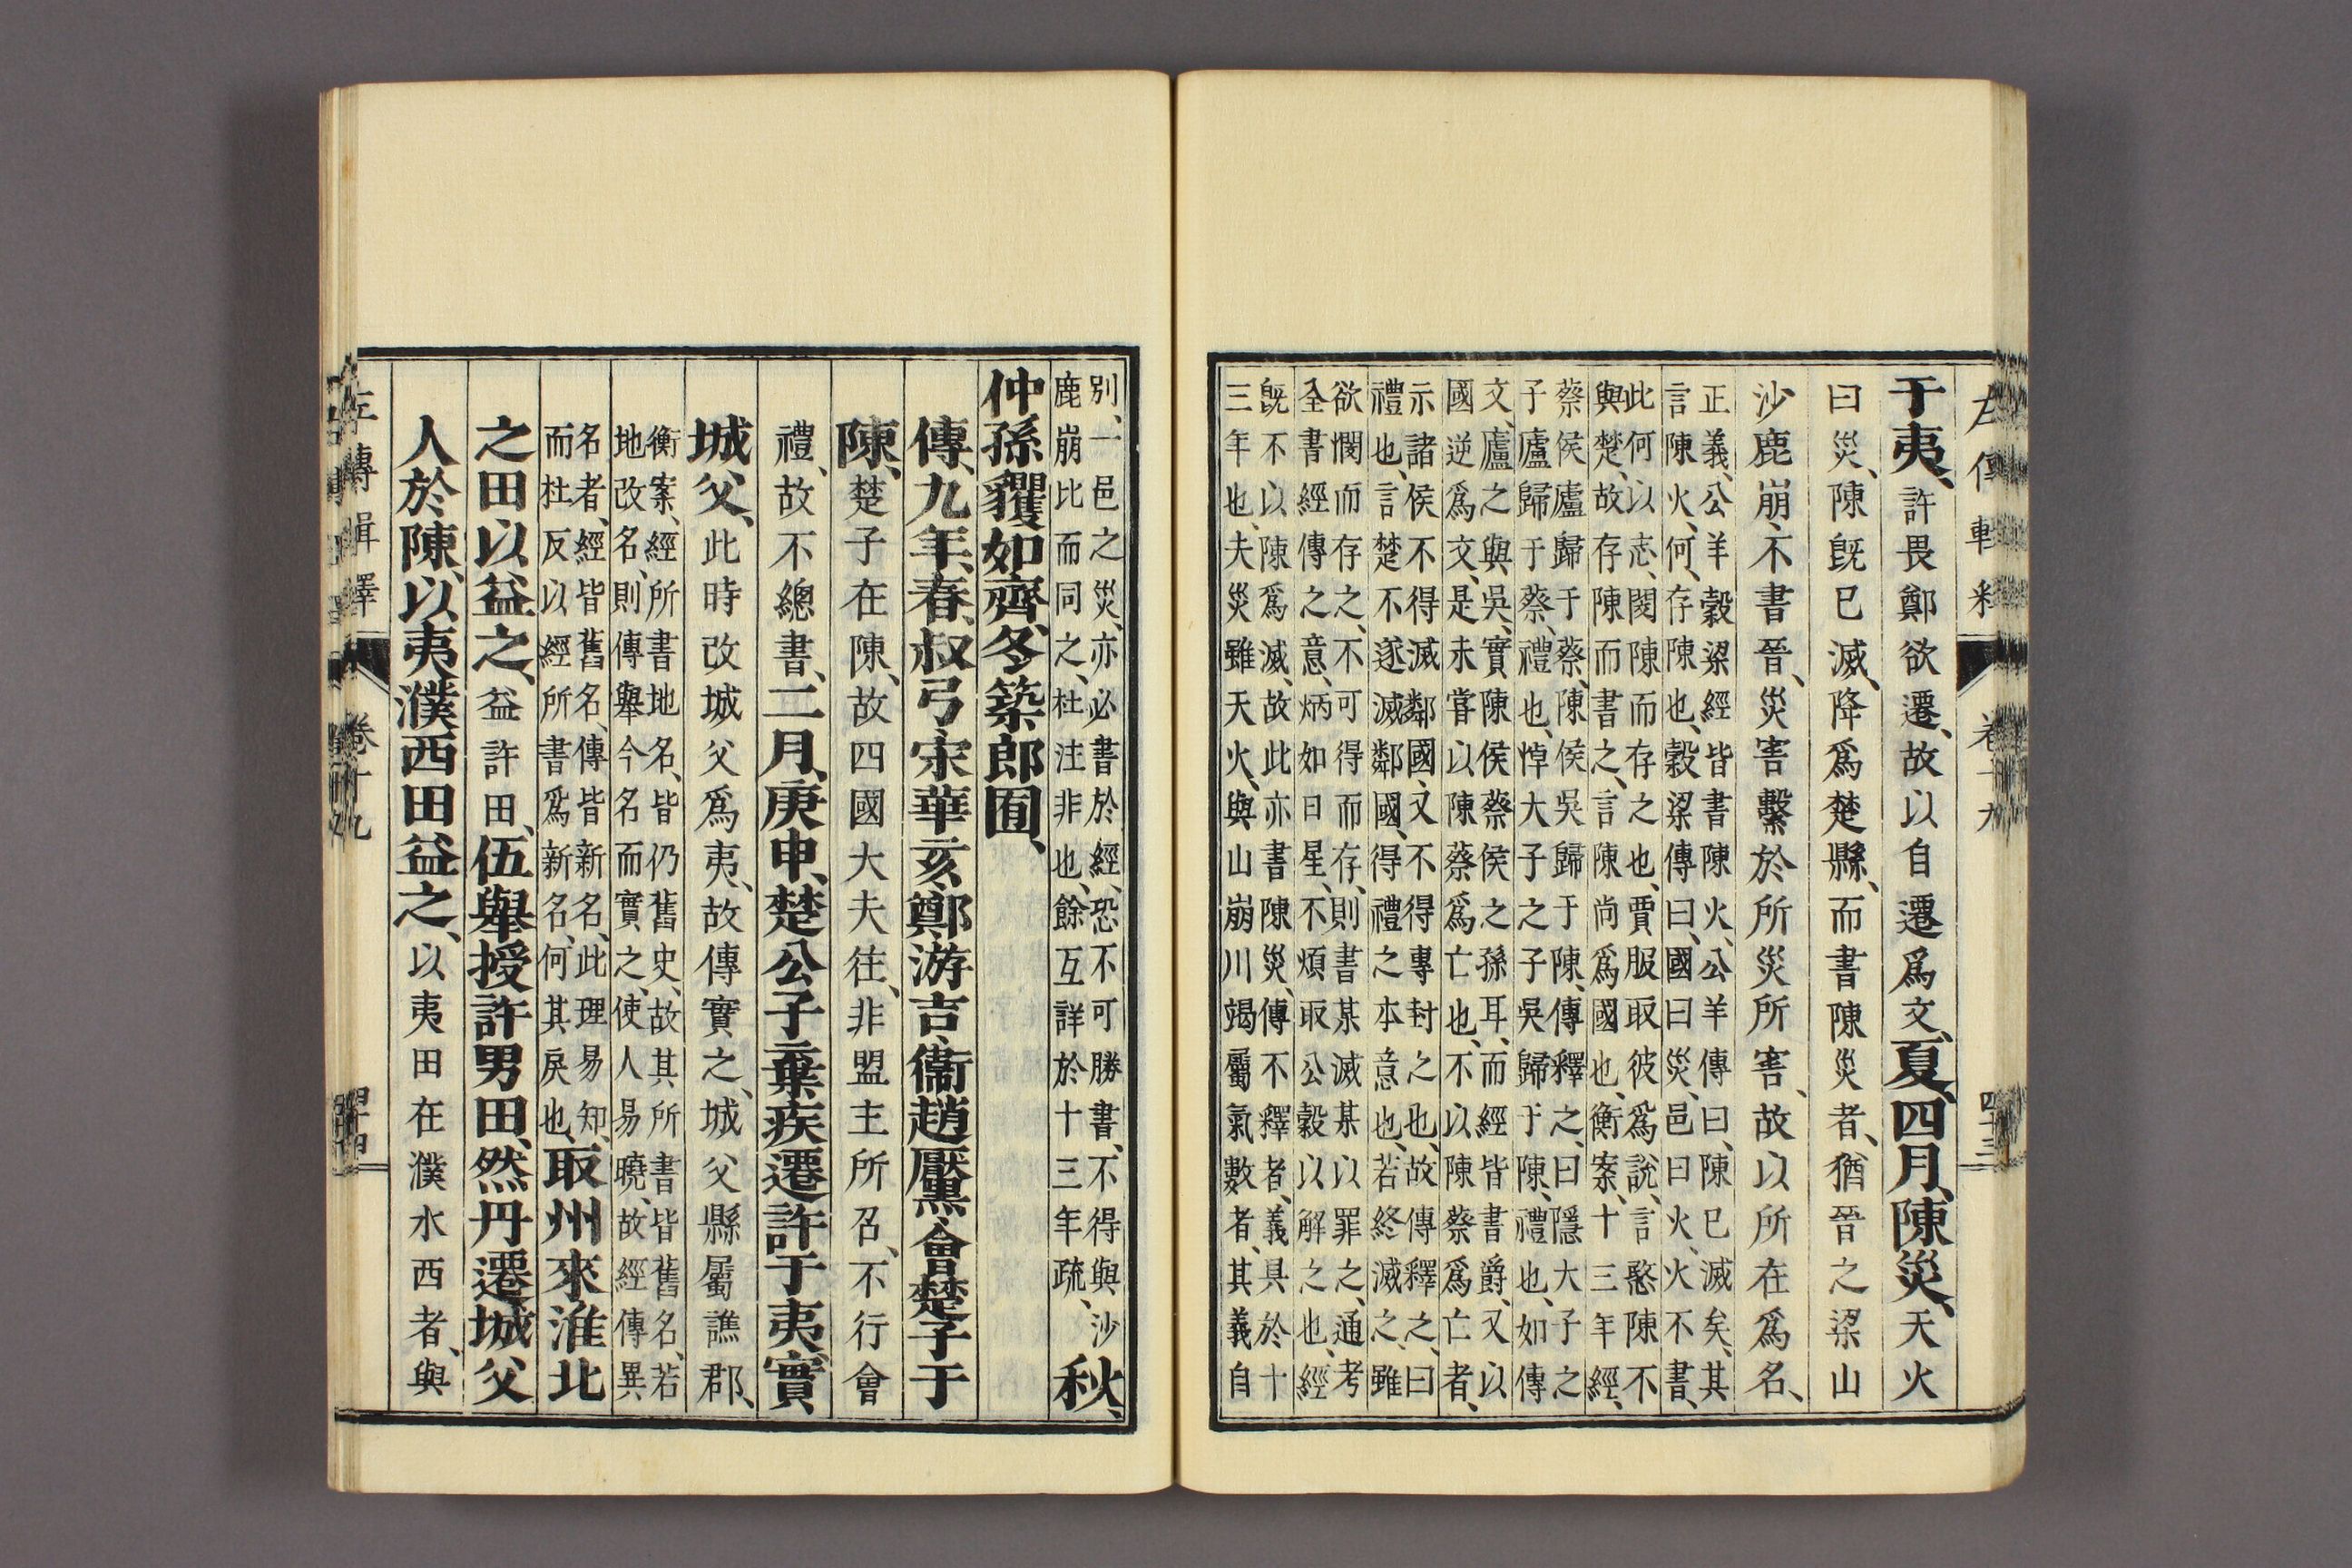 左傳輯釋 卷十九 四十三
于夷、許畏鄭欲遷、故以自遷爲文、夏、四月、陳災、天火
曰災、陳旣已滅、降爲楚縣、而書陳災者、猶晉之梁山
沙鹿崩、不書晉、災害繫於所災所害、故以所在爲名、
正義、公羊穀梁經皆書陳火、公羊傳曰、陳已滅矣、其
言陳火、何、存陳也、穀梁傳曰、國曰災、邑曰火、火不書、
此何以志、閔陳而存之也、賈服取彼爲說、言愍陳不
與楚、故存陳而書之、言陳尚爲國也、衡案、十三年經、
蔡侯廬歸于蔡、陳侯吳歸于陳、傳釋之、曰隱大子之
子廬歸于蔡、禮也、悼大子之子吳歸于陳、禮也、如傳
文、廬之與吳、實陳侯蔡侯之孫耳、而經皆書爵、又以
國逆爲文、是未嘗以陳蔡爲亡也、不以陳蔡爲亡者、
示諸侯不得滅鄰國、又不得專封之也、故傳釋之、曰
禮也、言楚不遂滅鄰國、得禮之本意也、若終滅之、雖
欲憫而存之、不可得而存、則書某滅某以罪之、通考
全書經傳之意、炳如日星、不煩取公穀以解之也、經
旣不以陳爲滅、故此亦書陳災、傳不釋者、義具於十
三年也、夫災雖天火、與山崩川竭屬氣數者、其義自
別、一邑之災、亦必書於經、恐不可勝書、不得與沙
鹿崩比而同之、杜注非也、餘互詳於十三年疏、秋、
仲孫貜如齊、冬、築郎囿、
傳、九年、春、叔弓、宋華亥、鄭游吉、衞趙黶、會楚子于
陳、楚子在陳、故四國大夫往、非盟主所召、不行會
禮、故不總書、二月、庚申、楚公子棄疾遷許于夷、實
城父、此時改城父爲夷、故傳實之、城父縣屬譙郡、
衡案、經所書地名、皆仍舊史、故其所書皆舊名、若
地改名、則傳舉今名而實之、使人易曉、故經傳異
名者、經皆舊名、傳皆新名、此理易知、
而杜反以經所書爲新名、何其戾也、取州來淮北
之田以益之、益許田、伍舉授許男田、然丹遷城父
人於陳、以夷濮西田益之、以夷田在濮水西者、與
左傳輯釋 卷十九 四十四